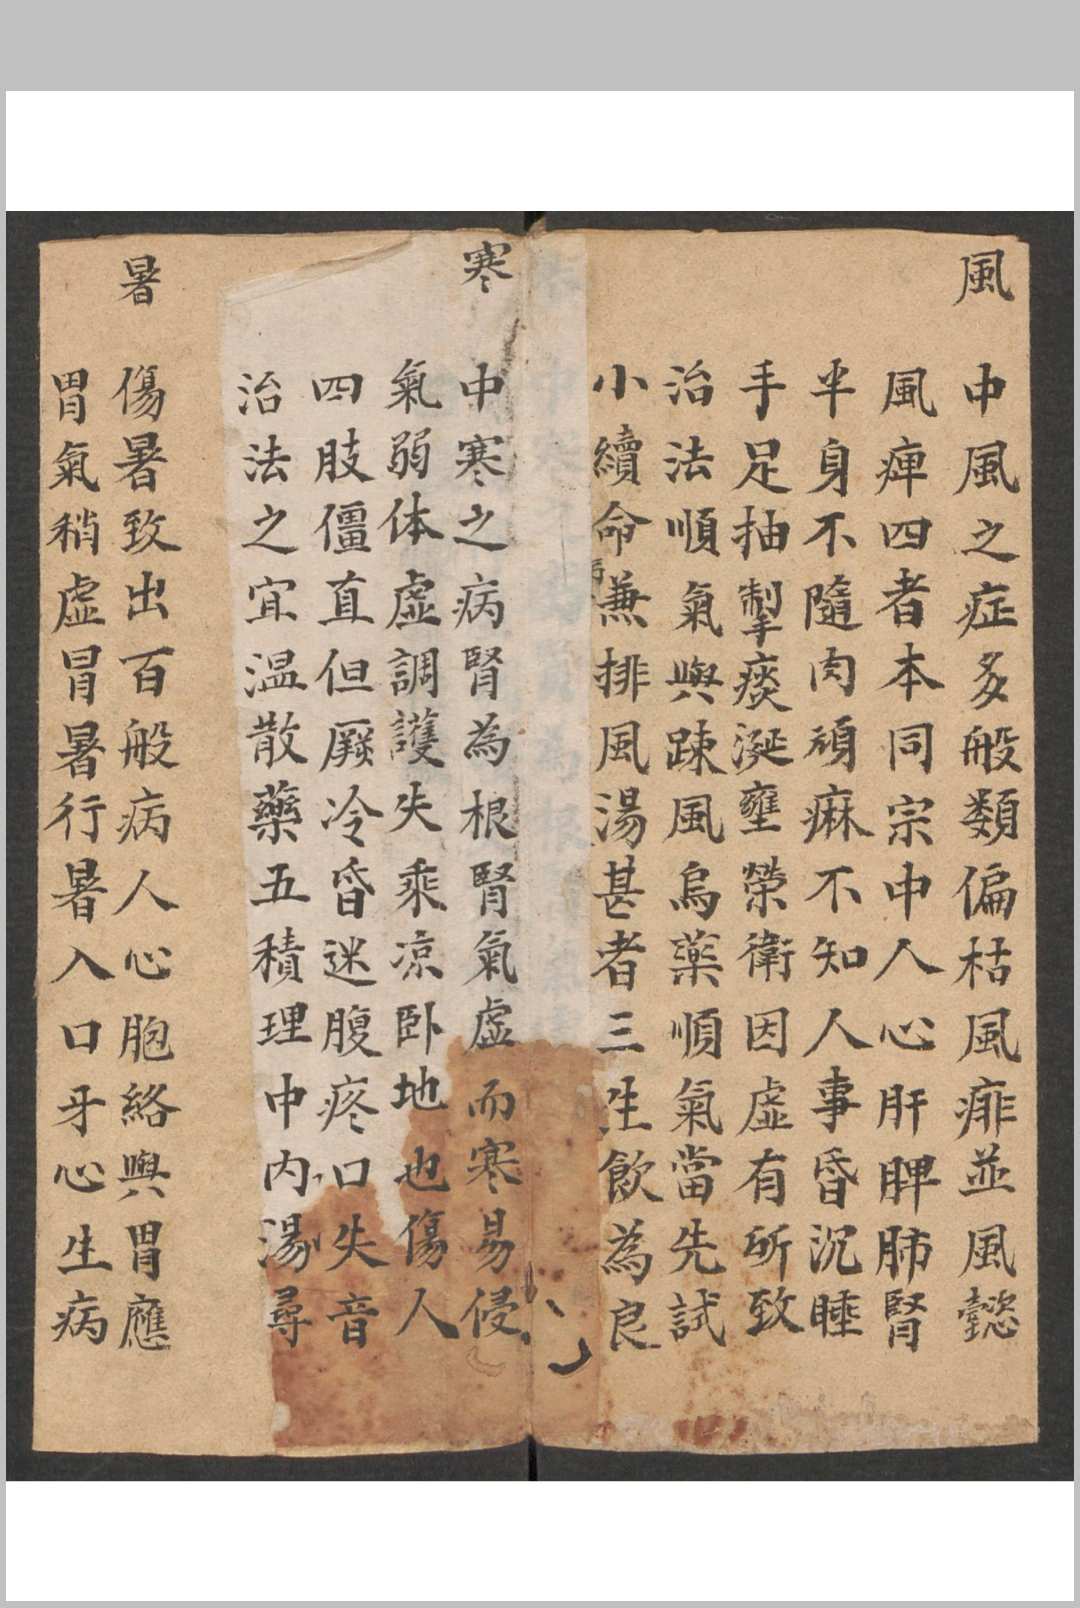 風
中風之症多般類偏枯風痱並風懿
風痺四者本同宗中人心肝脾肺腎
半身不隨肉頑麻不知人事昏沉睡
手足抽掣痰涎壅榮衛因虛有所致
治法順氣與踈風烏藥順氣當先試
小續命兼排風湯甚者三生飲為良
寒
中寒之病腎為根腎氣虛而寒易侵
氣弱体虛調護失乘凉卧地也傷人
四肢僵直但厥冷昏迷腹疼口失音
治法之宜温散藥五積理中内湯尋
暑
傷暑致出百般病人心胞絡與胃應
胃氣稍虛冒暑行暑入口牙心生病